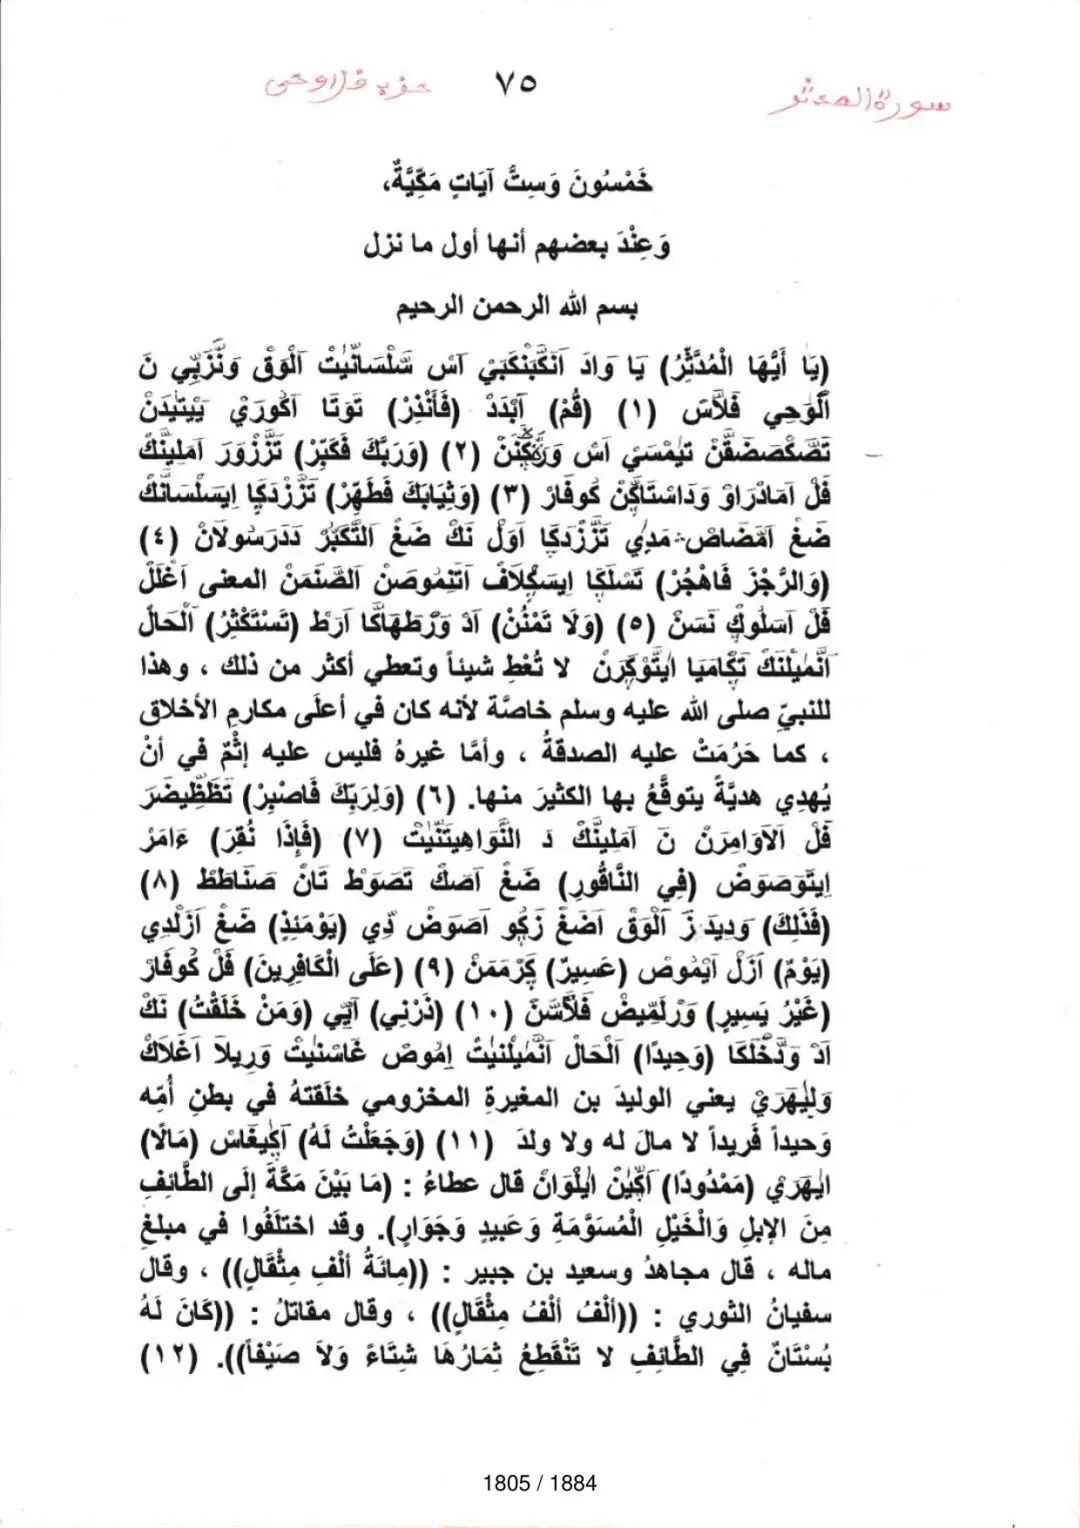 سورة المدثر ٧٥ حزب قل اوحى
خَمْسُونَ وَسِتُّ آيَاتٍ مَكِّيَّةٌ،
وَعِنْدَ بعضهم أنها أول ما نزل
بسم الله الرحمن الرحيم
(يَا أَيُّهَا الْمُدَّثِّرُ) يَا وَادَ آنَكَّبَنْكَبَيْ آسْ شَلْسَانَّيْتْ آلْوَقْ وَنَّزَبِّي نَ
آلْوَحِي فَلَّاسْ (١) (قُمْ) آبْدَدْ (فَأَنْذِرْ) تَوَتَا آكُورَيْ يَيْتِيدَنْ
(٢) (وَرَبَّكَ فَكَبِّرْ) تَزَّزْوَرَ آمَلِينَكْ
فَلْ آمَادْرَاوْ وَدَاسْتَاكَنْ كُوفَارْ (٣) (وَثِيَابَكَ فَطَهِّرْ) تَزَّزْدَكَا اِيسَلْسَانَكْ
ضَغْ آمَّضَاصْ مَدَي تَزَّزْدَكَا آوَلْ نَكْ ضَغْ آلتَّكَبُّرْ دَدَرَسُولَانْ (٤)
(وَالرُّجْزَ فَاهْجُرْ) تَسْلَكَا اِيسَكْلَافْ آتِنْمُوصَنْ آلصَّنَمَنْ المعنى آغْلَلْ
فَلْ آسَلُوكْ نَسَنْ (٥) (وَلَا تَمْنُنْ) آدْ وَرْطَهَاكَا آرَطْ (تَسْتَكْثِرُ) آلْحَالْ
آنَّمَيْلَنَكْ تَكَّامَيَا اَيْتَوْكَرَنْ لا تُعْطِ شيئاً وتعطي أكثر من ذلك ، وهذا
للنبيّ صلى الله عليه وسلم خاصَّة لأنه كان في أعلَى مكارمِ الأخلاق
، كما حَرُمَتْ عليه الصدقةُ ، وأمَّا غيرهُ فليس عليه إثْمٌ في أنْ
يُهدِي هديَّةً يتوقَّعُ بها الكثيرَ منها. (٦) (وَلِرَبِّكَ فَاصْبِرْ) تَظَظِيضَرَ
فَلْ آلَاوَامِرَنْ نَ آمَلِينَكْ دَ النَّوَاهِيتَنْيْتْ (٧) (فَإِذَا نُقِرَ) ءَامَرْ
اِيتَوَصَوَضْ (فِي النَّاقُورِ) ضَغْ آصَكْ تَصَوَطْ تَانْ صَنَاطَطْ (٨)
(فَذَلِكَ) وَدِيدَ زَ آلْوَقْ آضَغْ زَكُو آصَوَضْ دِي (يَوْمَئِذٍ) ضَغْ آزَلْدِي
(يَوْمٌ) آزَلْ آيْمُوصْ (عَسِيرٌ) كَرْمَمَنْ (٩) (عَلَى الْكَافِرِينَ) فَلْ كُوفَارْ
(غَيْرُ يَسِيرٍ) وَرْلَمِّيضْ فَلَّاسَنْ (١٠) (ذَرْنِي) آيِّي (وَمَنْ خَلَقْتُ) نَكْ
آدْ وَدَّخْلَكَا (وَحِيدًا) آلْحَالْ آنَّمَيْلَنَيْتْ اِمُوصْ غَاسْنَيْتْ وَرِيلَا آغْلَاكْ
وَلَيْهَرَيْ يعني الوليدَ بن المغيرةِ المخزومي خلَقتهُ في بطنِ أُمِّه
وَحيداً فَريداً لا مالَ له ولا ولدَ (١١) (وَجَعَلْتُ لَهُ) آكَيغَاسْ (مَالًا)
اَيْهَرَي (مَمْدُودًا) آكَّيْنْ اَيْلْوَانْ قال عطاءُ : (مَا بَيْنَ مَكَّةَ إلَى الطَّائِفِ
مِنَ الإبلِ وَالْخَيْلِ الْمُسَوَّمَةِ وَعَبيدٍ وَجَوَارٍ). وقد اختلَفُوا في مبلغِ
ماله ، قال مجاهدُ وسعيد بن جبير : ((مِائَةُ أَلْفِ مِثْقَالٍ)) ، وقال
سفيانُ الثوري : ((أَلْفُ أَلْفُ مِثْقَالٍ)) ، وقال مقاتلُ : ((كَانَ لَهُ
بُسْتَانٌ فِي الطَّائِفِ لا تَنْقَطِعُ ثِمَارُهَا شِتَاءً وَلاَ صَيْفاً)). (١٢)
1805 / 1884